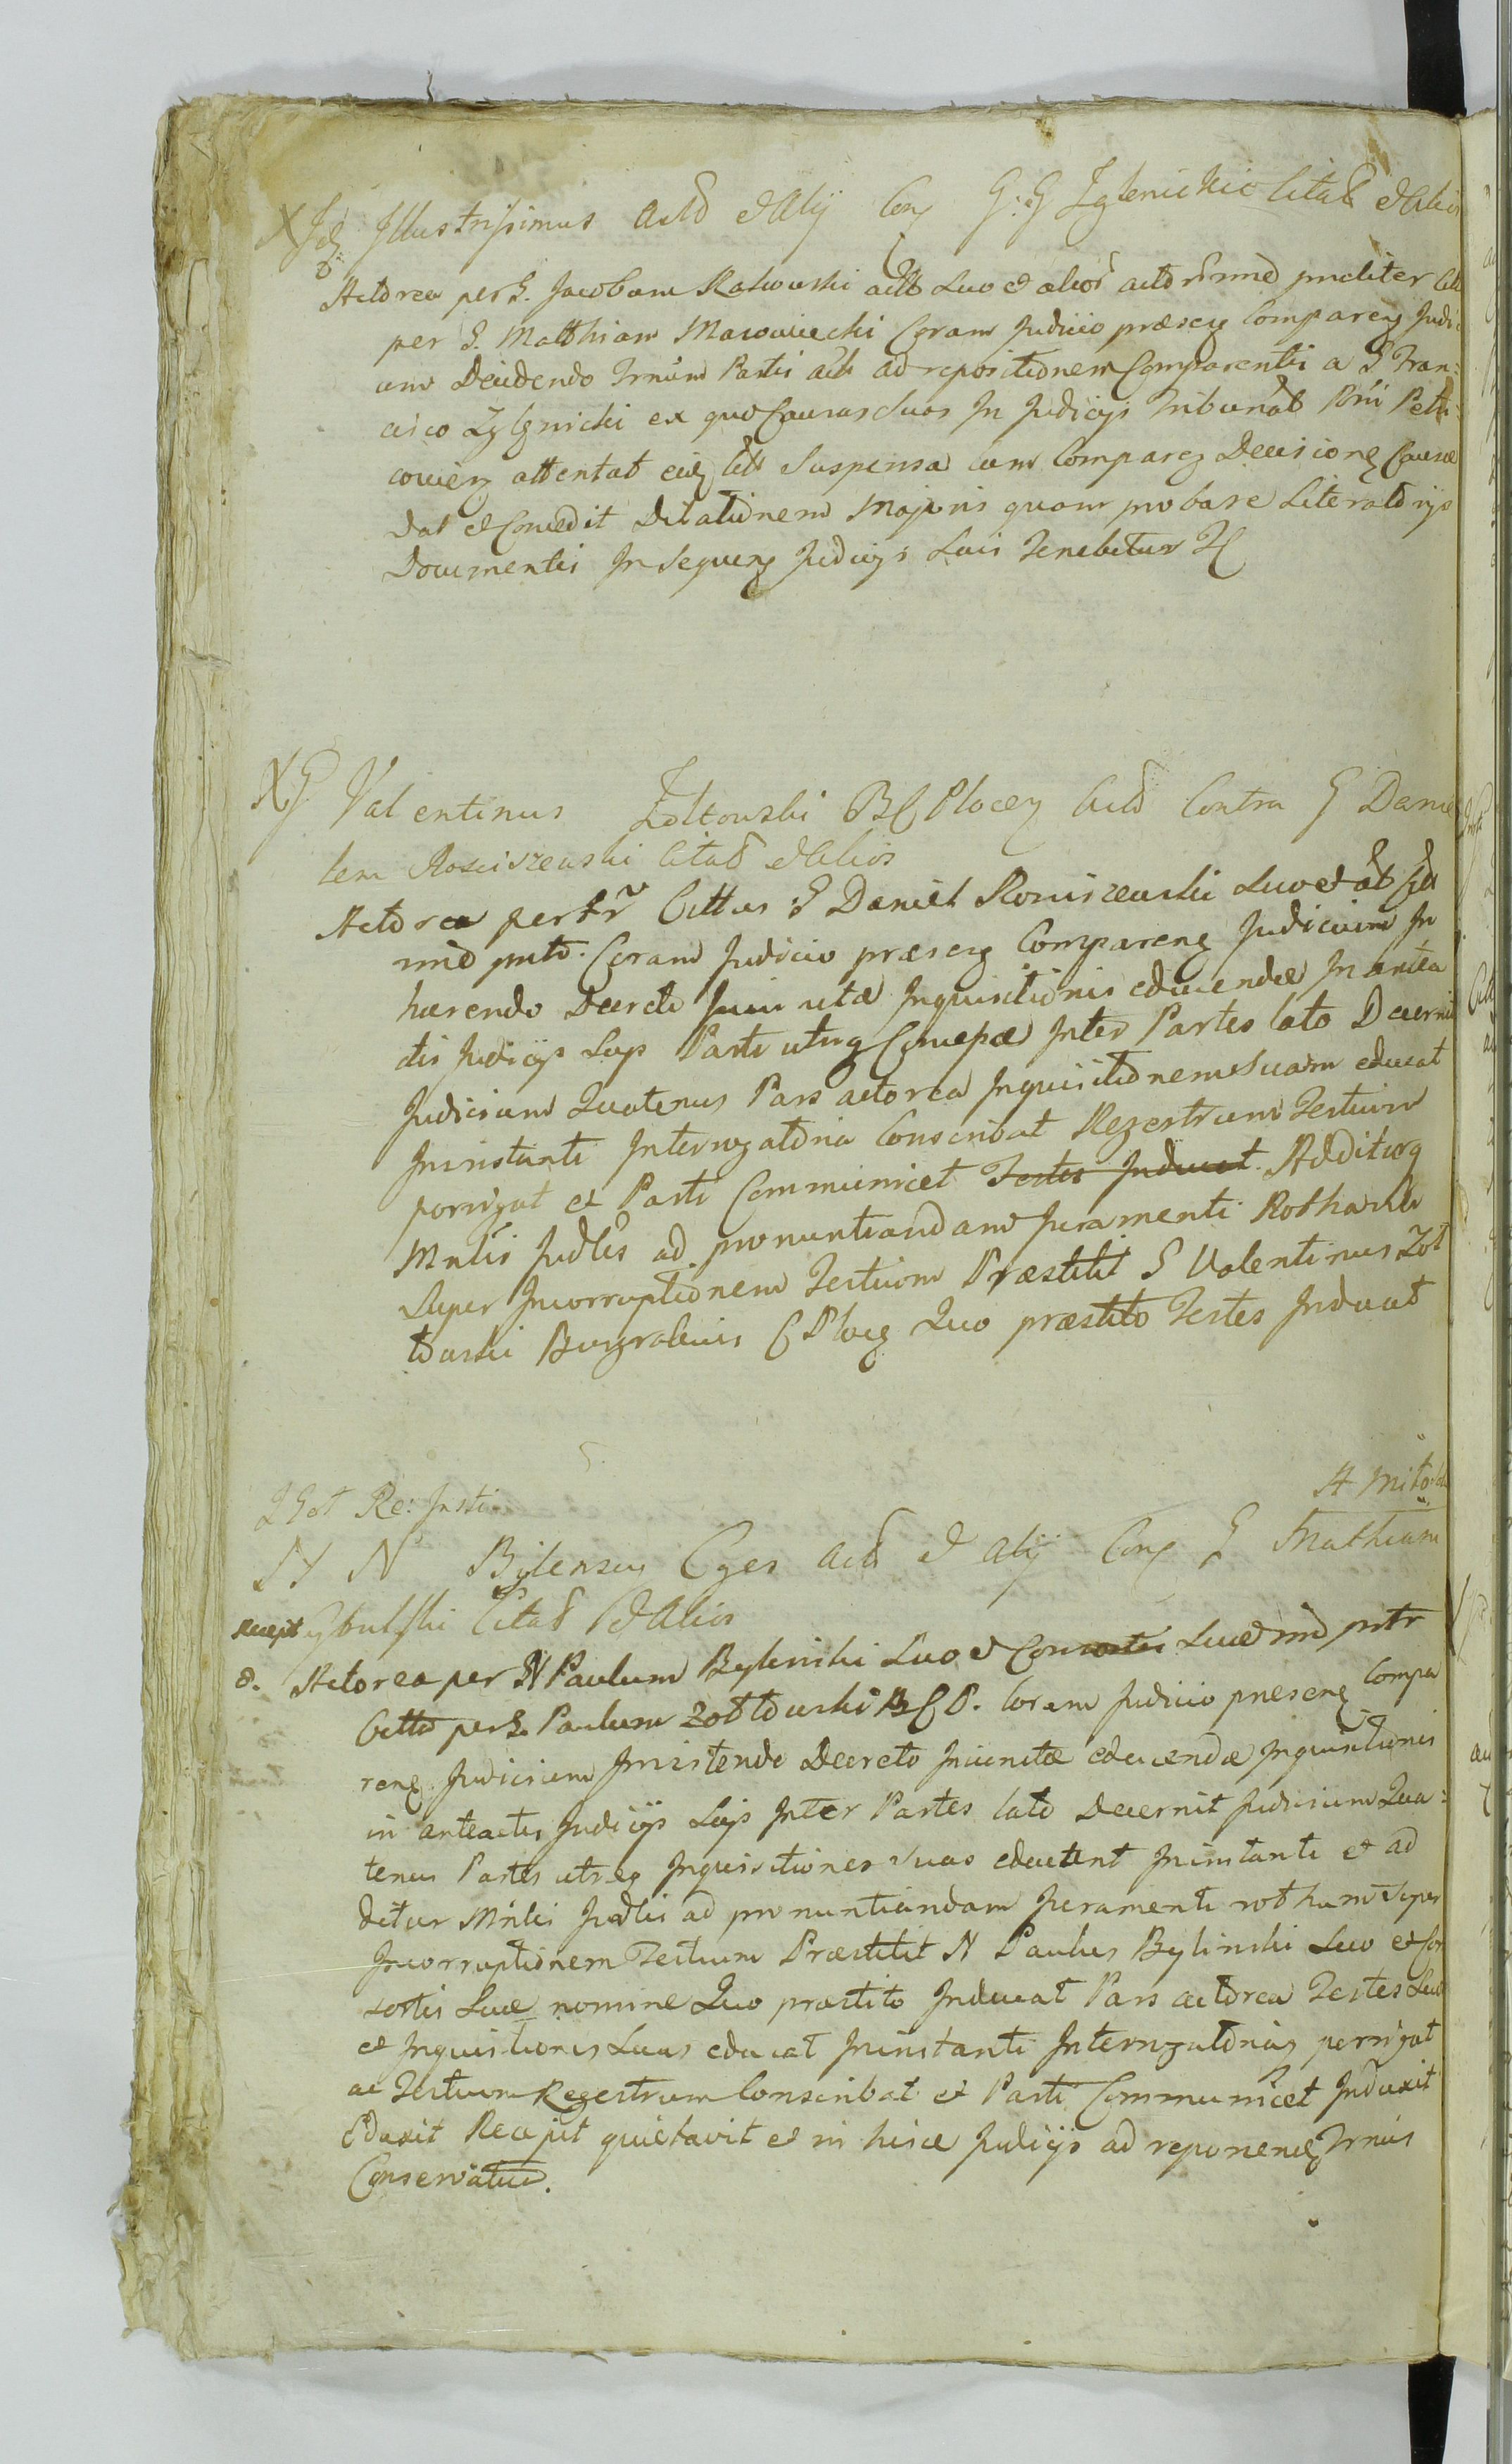 X Id Illustrissimus Actō et Alij Conę G: G Zglenickie Citat et Alios
Actorea per G. Jacobum Rakowski actō suo et alior actō nomē pncliter Citt
per G. Matthiam Marowiecki Coram Judicio præsenę Comparenę Judici
um Decidendo Trnum Partis actō ad repositionem Comparentis a G Fran:
cisco Zglenicki ex quo Causas Suas In Judicijs Tribunal Rni Petri:
covien attentat eius Suspensa cum Comparenę Decisionę Causæ
dat et Concedit Dilationem Majoris quam probare Literatorijs
Documentis In Sequenę Judicijs Suis Tenebitur
X G Valentinus Zoltowski B C Plocenę Actō Contra G Danie
lem Rosciszewski Citat et Alios
Actorea per Cittus G Daniel Rosciszewski Suo et
niē pntō. Coram Judicio præsenę Comparenę Judicium In
hærendo Decreto Inquisitionis educendæ In antea
ctis Judicijs Suijs Parti utriq Inter Partes lato Decernit
Judicium Quatenus Pars actorea Inquisitionem Suam educat
Ininstanti Interrogatoria Conscribat Regestrum Testium
porrigat et Parti Communicet Testes Inducat. Additurq
Mnlis Judlis ad pronuntiandam Juramenti Rotham
Super Incorruptionem Testium Præstitit G Valentinus Zol
towski Burgrabius C Plocę Quo præstito Testes Inducat
Re: Insti
N Bylenscy Cges Actō et Alij Conę G Mathiam
Citat et Alios
Recepit
d. Actorea per N Paulum Bylinski Suo et Consortis Suæ niē pntr
Cittō per G. Paulum Zoltowski B C P. Coram Judicio præsenę Compa
renę Judicium Insistendo Decreto Iniunctæ educendæ Inquisitionis
in anteactis Judicijs Suijs Inter Partes lato Decernit Judicium Qua:
tenus Partes utreq Inquisitiones Suas educant Ininstanti et ad
ditur Mnlis Judlis ad pronuntiandam Juramenti rotham Super
Incorruptionem Testium Præstitit N Paulus Bylinski Suo et Con
sortis Suæ nomine Quo præstito Inducat Pars actorea Testes Suos
et Inquisitiones Suas educat Ininstanti Interrogatorias porrigat
ac Testium Regestrum Conscribat et Parti Communicet Induxit
Eduxit Recepit quietavit et in hisce Judicijs ad reponenę Trnus
Conservatur.